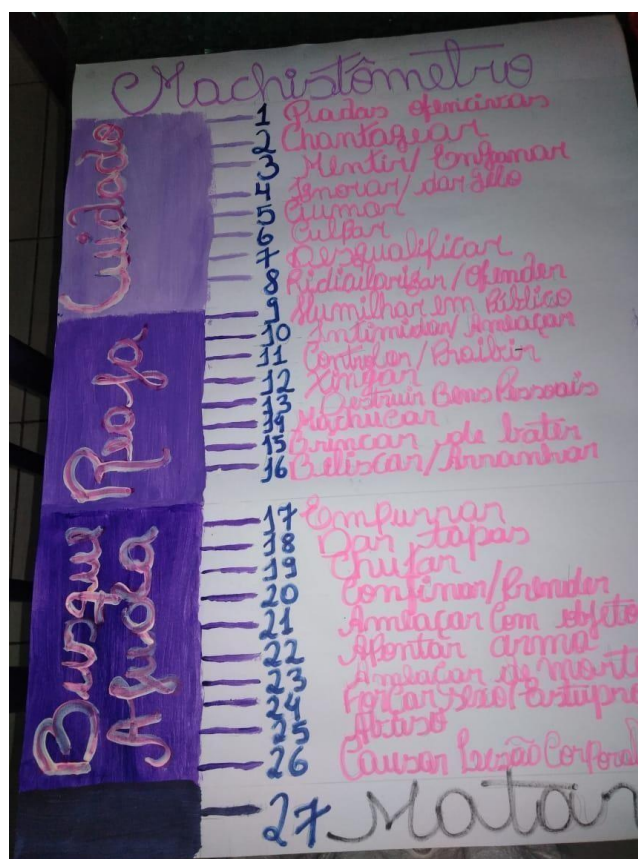 Machistômetro
Cuidado
1 Piadas ofencivas
2 Chantagear
3 Mentir/Enganar
4 Ignorar/dar gelo
5 Ciumar
6 Culpar
7 Desqualificar
8 Ridicularizar/Ofender
9 Humilhar em Público
10 Intimidar/Ameaçar
Reaja
11 Controlar/Proibir
12 Xingar
13 Destruir Bens Pessoais
14 Machucar
15 Brincar de bater
16 Beliscar/Arranhar
Busque Ajuda
17 Empurrar
18 Dar tapas
19 Chutar
20 Confinar/Prender
21 Ameaçar com objeto
22 Apontar arma
23 Ameaçar de morte
24 Forçar sexo/Estupro
25 Abuso
26 Causar Lezão Corporal
27 Matar